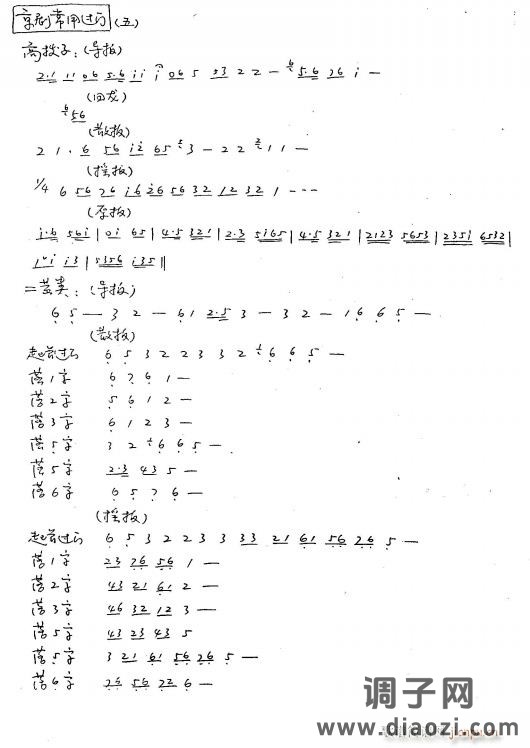 京剧常用过门(五)
高拨子:(导板)
2·1 11 06 5·6 ii i 065 53 22 — 6 5·6 76 i —
(回龙)
6 56
(散板)
2 1 · 6 56 i2 65 5 3 — 2 2 2 1 1 —
(摇板)
1/4 6 56 76 i6 26 56 32 12 32 1 ---
(原板)
i·6 56i | 0i 65 | 4·5 321 | 2·3 5165 | 4·5 321 | 2123 5653 | 235i 6532 |
i3 | 5356 i35 ‖
二黄类:(导板)
6 5 — 3 2 — 61 2·5 3 — 3 2 — 1 6 6 5 —
(散板)
起首过门 6 5 3 2 2 3 3 2 6 6 5 —
落1字 6 7 6 1 —
落2字 5 6 1 2 —
落3字 6 1 2 3 —
落5字 3 2 6 6 5 —
落5字 2·3 43 5 —
落6字 6 5 7 6 —
(摇板)
起首过门 6 5 3 2 2 3 3 33 21 61 56 76 5 —
落1字 23 76 56 1 —
落2字 43 21 61 2 —
落3字 46 32 12 3 —
落5字 43 23 43 5
落5字 3 21 61 56 76 5 —
落6字 76 56 76 6 —
调子网
www.diaozi.com